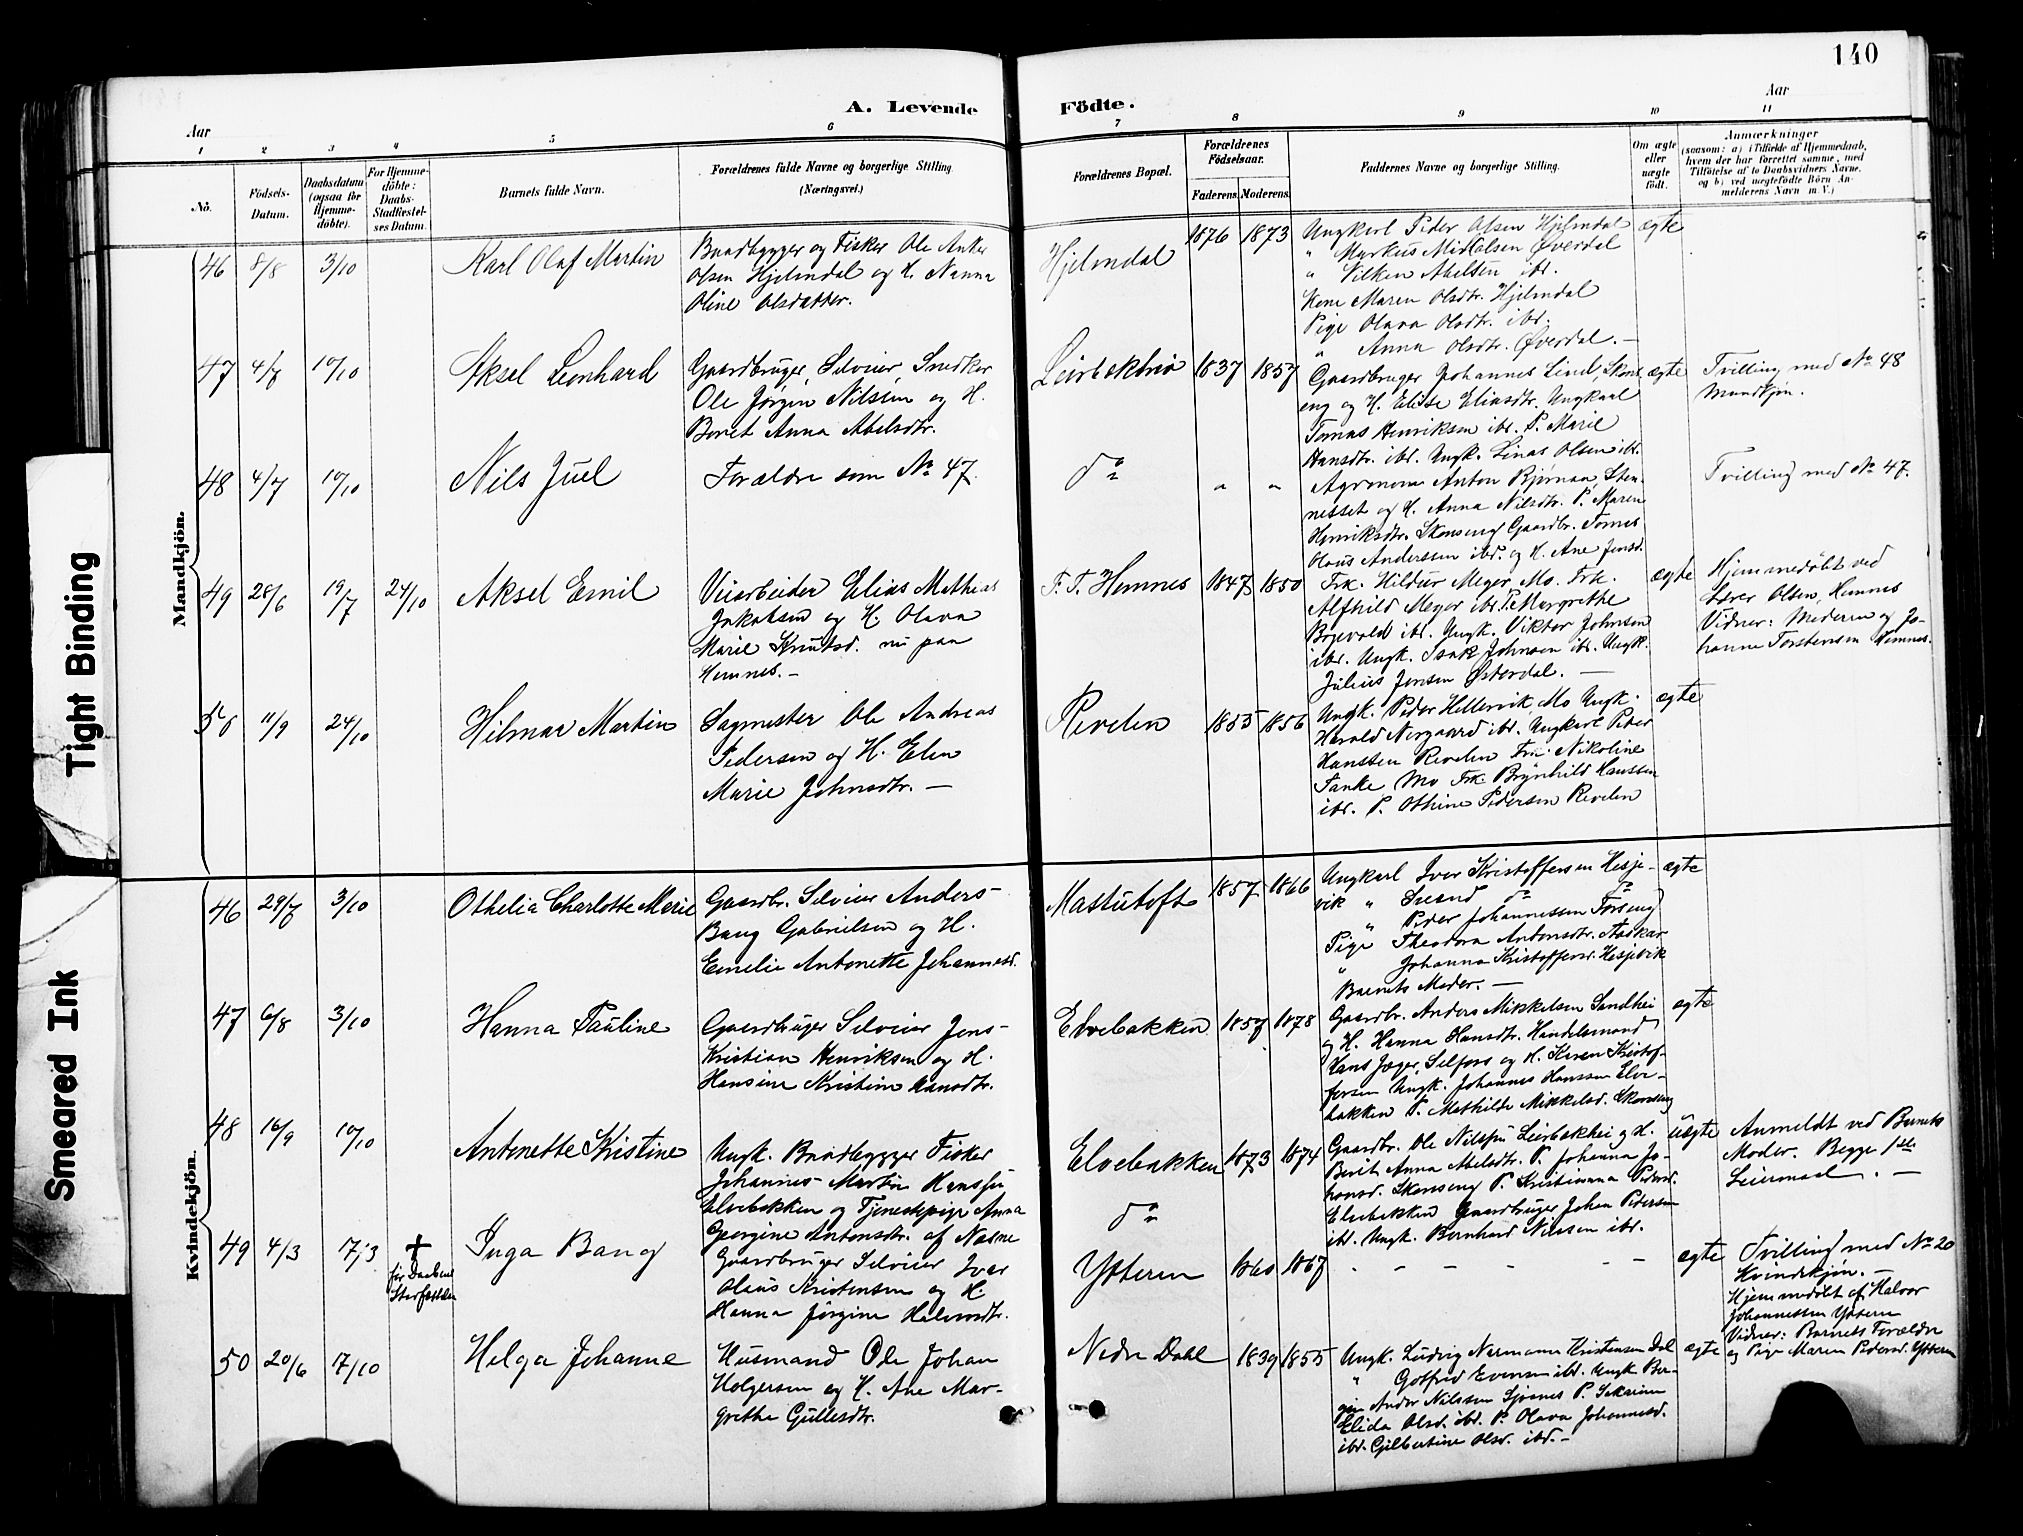 140
A. Levende
Födte.
Aar
Aar
1
2
3
4
5
6
7
8
9
10
11
No.
Födsels-
Datum.
Daabsdatum
(ogsaa for
Hjemme-
döbte).
For Hjemme-
döbte:
Daabs-
Stadfæstel-
ses Datum.
Barnets fulde Navn.
Forældrenes fulde Navne og borgerlige Stilling.
(Næringsvei.)
Forældrenes Bopæl.
Forældrenes
Födselsaar.
Faderens.
Moderens.
Faddernes Navne og borgerlige Stilling.
Om ægte
eller
uægte
födt.
Anmærkninger
(saasom: a) i Tilfælde af Hjemmedaab,
hvem der har forrettet samme, med
Tilföielse af to Daabsvidners Navne,
og b) ved uægtefödte Börn An-
melderens Navn m. V.)
Mandkjön.
46 8/8 3/10
Karl Olaf Martin
Baadbygger og Fisker Ole Anker
Olsen Hjelmdal og H. Nanna
Oline Olsdatter.
Hjelmdal
1876 1873
Ungkarl Peder Olsen Hjelmdal
" Markus Mikkelsen Øverdal
" Vilken Abelsen ibr.
Kone Maren Olsdtr. Hjelmdal
Pige Olava Olsdtr. ibr.
" Anna Olsdtr. Øverdal. —
ægte
47 4/7 10/10
Aksel Leonhard
Gaardbruger, Selveier, Snedker
Ole Jørgen Nilsen og H.
Beret Anna Abelsdtr.
1837 1857
Gaardbruger Johannes Lind, Skons
eng og H. Elisse Eliasdtr. Ungkarl
Tomas Henriksen ibr. P. Marie
Hansdtr. ibr. Ungk. Linas Olsen ibr.
ægte
Tvilling med No 48
Mandkjøn.
48 4/7 10/10
Nils Juel
Forældre som No 47.
do
" "
Agronom Anton Bjørnaa, Sten-
nesset og H. Anna Nilsdtr. P. Maren
Henriksdtr. Skonseng Gaardbr. Tomas
Olaus Anderssen ibd. og H. Ane Jensd.
Tvilling med No 47.
49 28/6 19/7 24/10
Aksel Emil
Veiarbeider Elias Mathias
Jakobsen og H. Olava
Marie Knutsd. nu paa
Hemnes. —
F. T. Hemnes
1847 1850
Frk. Hildur Meyer, Mo. Frk.
Alfhild Meyer ibr. P. Margrethe
ibr. Ungk. Viktor Johnsen
ibr. Ungk. Isak Johnsen ibr. Ungk.
Julius Jensen Østerdal. —
ægte
Hjemmedöbt ved
Lærer Olsen, Hemnes
Vidner: Moderen og Jo-
hanne Torstensen Hemnes.
50 11/9 24/10
Hilmar Martin
Sagmester Ole Andreas
Pedersen og H. Elen
Marie Johnsdtr. —
Revelen
1855 1856
Ungk. Peder Hellervik, Mo Ungk.
Harald Norgaard ibr. Ungkarl Peder
Hanssen Revelen Fru Nikoline
Tanke, Mo Frk. Brynhild Hanssen
ibr. P. Othine Pedersen Revelen
ægte
Kvindekjön.
46 29/7 3/10
Othelia Charlotte Marie
Gaardbr. Selveier Anders
Bang Gabrielsen og H.
Emelie Antonette Johannesd.
Mastutoft
1857 1866
Ungkarl Iver Kristoffersen Hesje-
vik " Svend do
" Peder Johannessen Forseng
Pige Theodora Antonsdtr. Aaskar
" Johanna Kristoffersd. Hesjevik
Barnets Moder. —
ægte
47 6/8 3/10
Hanna Pauline
Gaardbruger Selveier Jens
Kristian Henriksen og H.
Hansine Kristine Hansdtr.
Elvebakken
1857 1878
Gaardbr. Anders Mikkelsen Sandhei
og H. Hanna Hansdtr. Handelsmand
Hans Jæger, Selfors og H. Karen Kristof-
fersen Ungk. Johannes Hanssen Elve-
bakken P. Mathilde Mikkelsd. Skonseng
ægte
48 16/9 10/10
Antonette Kristine
Ungk. Baadbygger Fisker
Johannes Martin Hanssen
Elvebakken og Tjenestepige Anna
Georgine Antonsdtr. af Nesne
Elvebakken
do
1873 1874
Gaardbr. Ole Nilssen Leirbakhei og H.
Berit Anna Abelsdtr. P. Johanna Jo-
hansd. Skonseng P. Kristianna Pedersd.
Elvebakken Gaardbruger Johan Pedersen
ibr. Ungk. Bernhard Nilssen ibr.
uægte
Anmeldt ved Barnets
Moder. Begge 1ste
Leiermaal. —
49 4/3 17/3
†
før Daabens
Stadfæstelse
Inga Bang
Gaardbruger Selveier Ivar
Olaus Kristensen og H.
Hanna Jørgine Halvorsdtr.
Ytteren
1860 1867
- - - - - -
ægte
Tvilling med No 20
Kvindekjön. —
Hjemmedøbt af Halvor
Johannessen Ytteren
Vidner: Barnets Forældre
og Pige Maren Pedersd. Ytteren
50 20/6 17/10
Helga Johanne
Husmand Ole Johan
Holgersen og H. Ane Mar-
grethe Gullesdtr.
Nedre Dahl
1839 1855
Ungk. Ludvig Normann Kristensen Dal
" Gotfred Evensen ibr. Ungk Ber-
Ander Nilssen Sjonnes P.
Elida Olsd. ibr. P. Olava Johannesd.
ibr. Gilbertine Olsd. ibr. —
ægte
Tight Binding
Smeared Ink